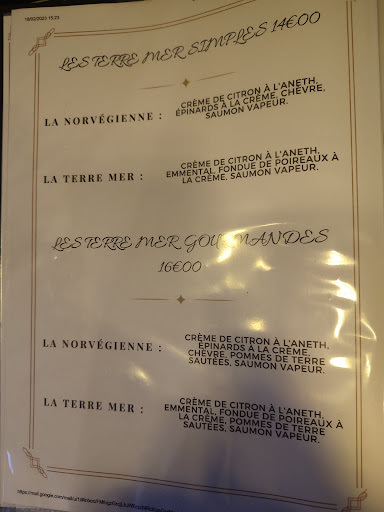 18/02/2023 15:23
LES TERRE MER SIMPLES 14€00
LA NORVÉGIENNE :
CRÈME DE CITRON À L'ANETH,
ÉPINARDS À LA CRÈME, CHÈVRE,
SAUMON VAPEUR.
LA TERRE MER :
CRÈME DE CITRON À L'ANETH,
EMMENTAL, FONDUE DE POIREAUX À
LA CRÈME, SAUMON VAPEUR.
LES TERRE MER GOURMANDES
16€00
LA NORVÉGIENNE :
CRÈME DE CITRON À L'ANETH,
ÉPINARDS À LA CRÈME,
CHÈVRE, POMMES DE TERRE
SAUTÉES, SAUMON VAPEUR.
LA TERRE MER :
CRÈME DE CITRON À L'ANETH,
EMMENTAL, FONDUE DE POIREAUX À
LA CRÈME, POMMES DE TERRE
SAUTÉES, SAUMON VAPEUR.